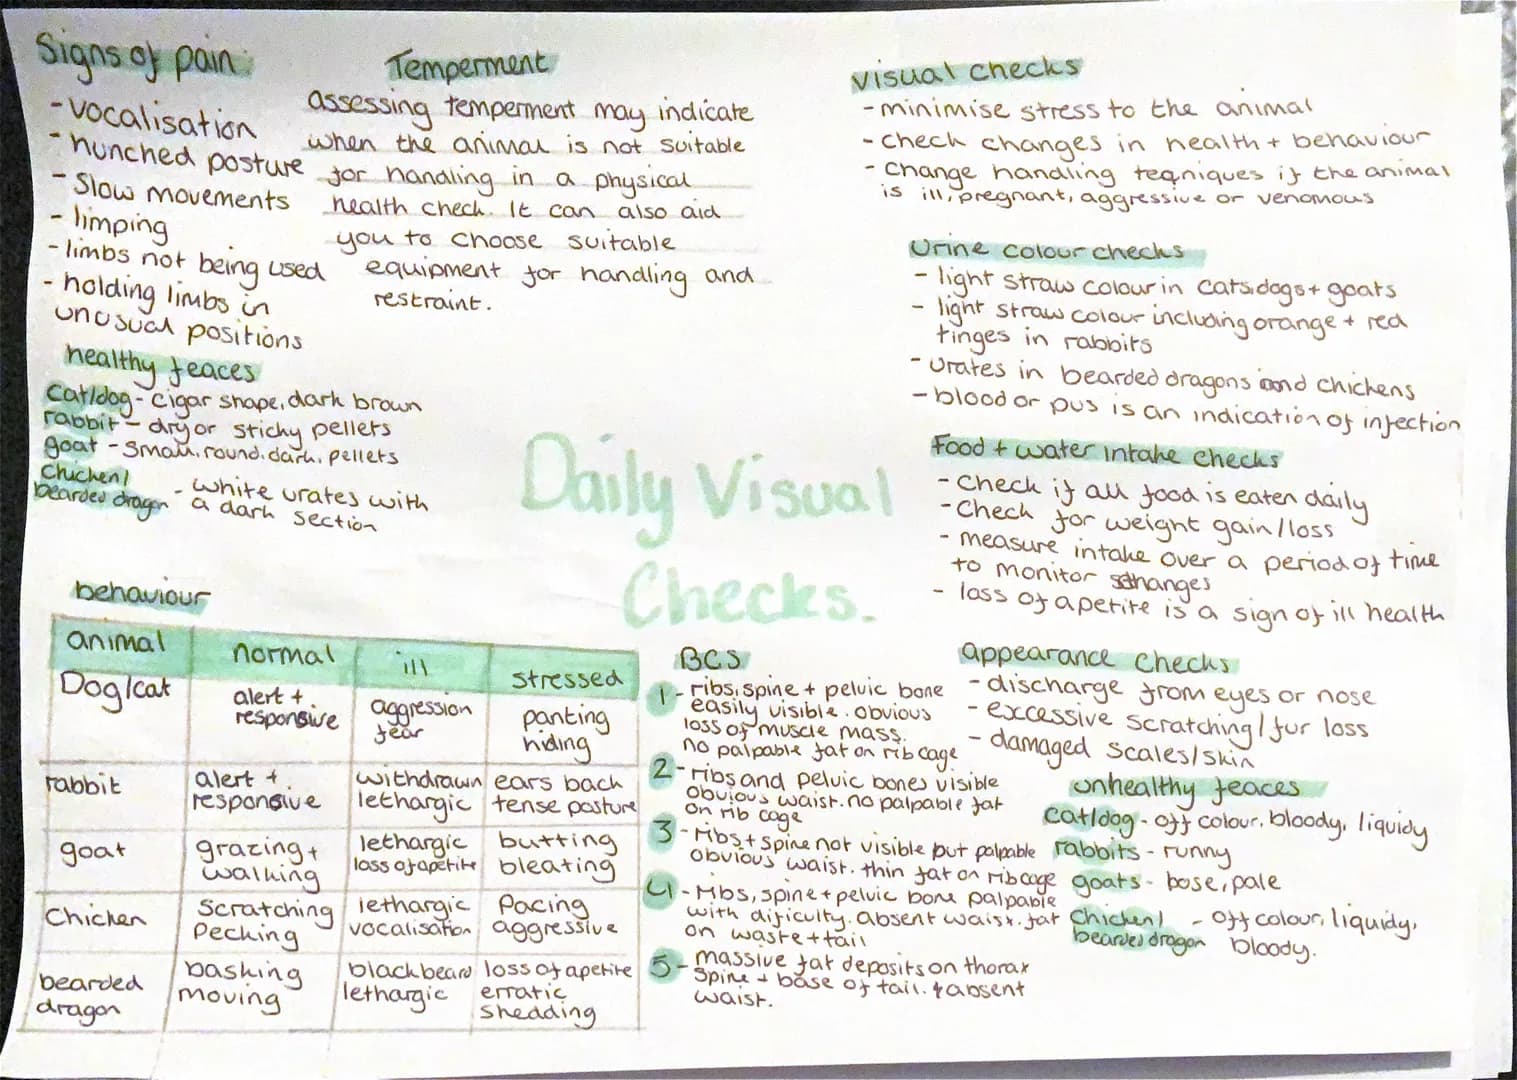 Signs of pain:
-vocalisation
-hunched posture
-Slow movements
-limping
-limbs not being used
-holding limbs in
unusual positions
Temperment
assessing temperment may indicate
when the animal is not suitable
for handling in a physical
health check. It can also aid
you to choose suitable
equipment for handling and
restraint.
visual checks
-minimise stress to the animal
-check changes in health + behaviour
-change handling teqniques if the animal
is ill, pregnant, aggressive or venomous
Urine colour checks
- light straw colour in cats,dogs + goats
- light straw colour including orange + red
tinges in rabbits
-urates in bearded dragons and chickens
-blood or pus is an indication of infection
healthy feaces
Cat/dog- cigar shape, dark brown
rabbit- dry or sticky pellets
goat -small, round, dark, pellets
Chicken/
bearded dragon - white urates with
a dark section
Daily Visual
Checks.
Food + water intake checks
-check if all food is eaten daily
-Check for weight gain/loss
- measure intake over a period of time
to monitor changes
- loss of apetite is a sign of ill health
behaviour
animal normal ill stressed
Dog/cat alert + responsive aggression fear panting hiding
rabbit alert + responsive withdrawn lethargic ears back tense posture
goat grazing + walking lethargic loss of apetite butting bleating
Chicken Scratching Pecking lethargic vocalisation Pacing aggressive
bearded dragon basking moving black beard lethargic loss of apetite erratic shedding
BCS
1 - ribs, spine + pelvic bone
easily visible. obvious
loss of muscle mass.
no palpable fat on rib cage
2 -ribs and pelvic bones visible
obvious waist. no palpable fat
on rib cage
3 -ribs + spine not visible but palpable
obvious waist. thin fat on rib cage
4 -ribs, spine + pelvic bone palpable
with dificulty. absent waist. fat
on waste + tail
5 - massive fat deposits on thorax
spine + base of tail. + absent
waist.
appearance checks
-discharge from eyes or nose
-excessive scratching/fur loss
-damaged scales/skin
unhealthy feaces
cat/dog - off colour, bloody, liquidy
rabbits - runny
goats - bose, pale
Chicken/
bearded dragon - off colour, liquidy,
bloody.